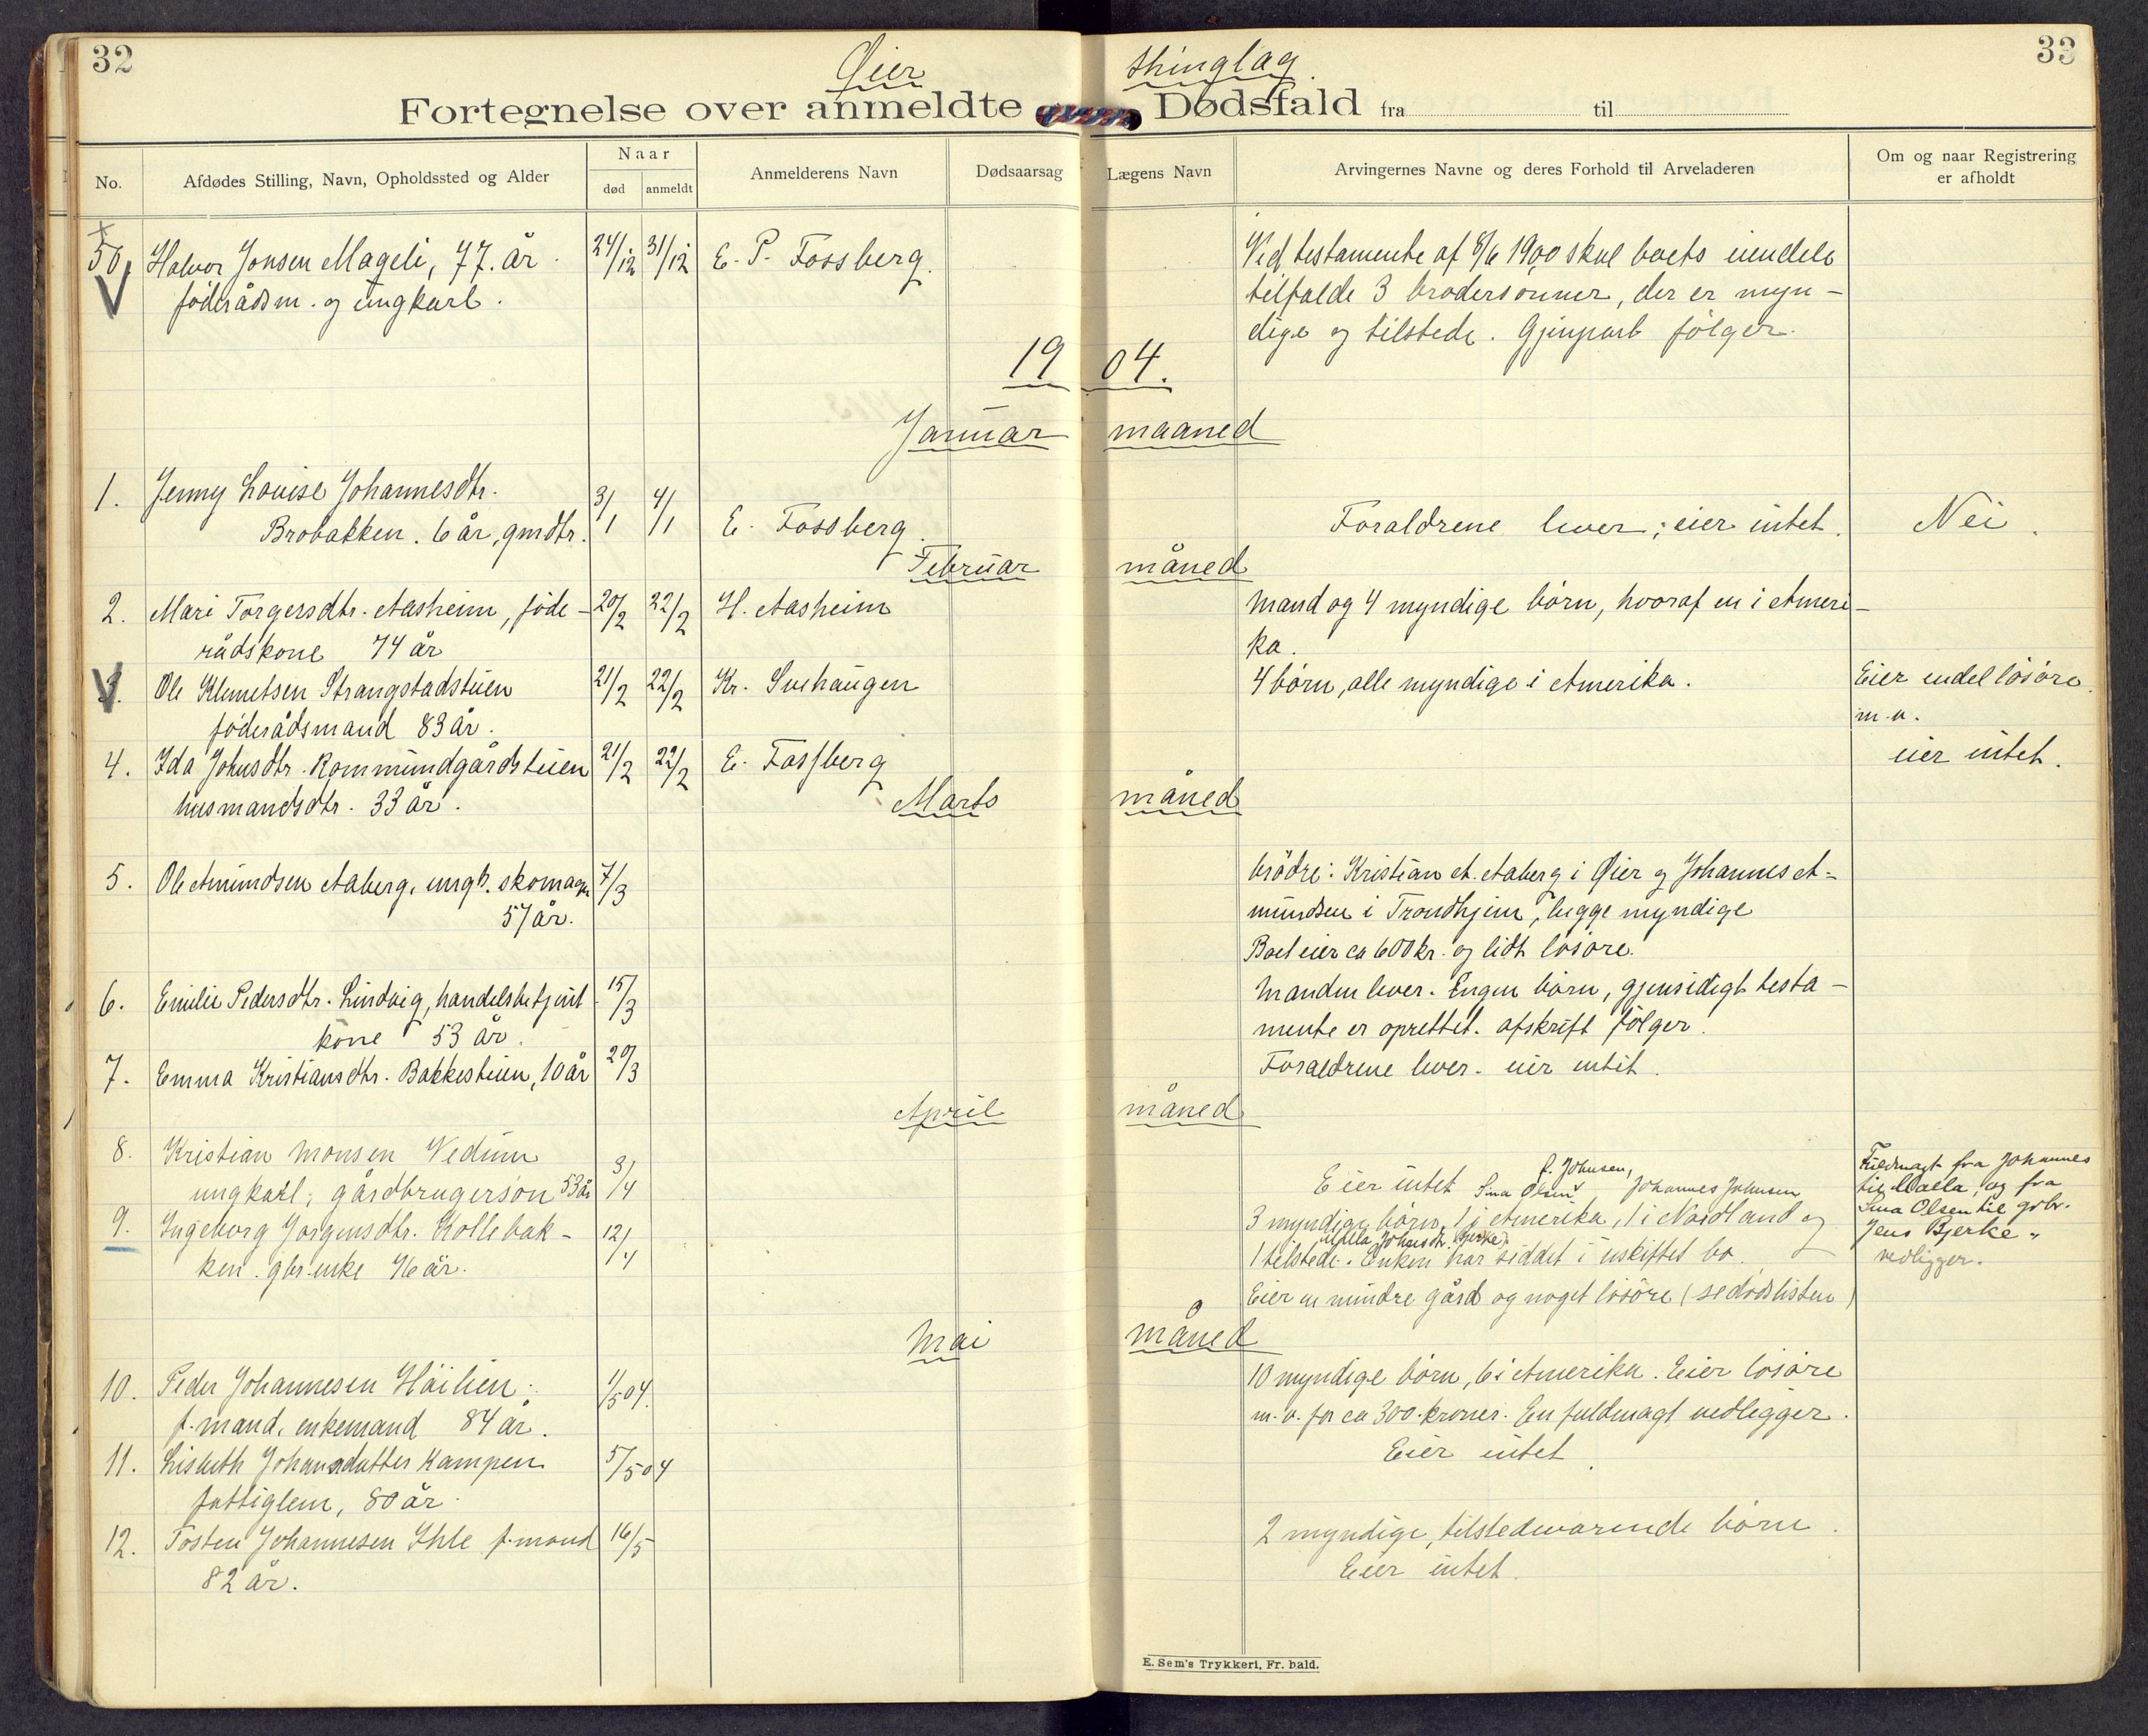 32
33
Øier thinglag.
Fortegnelse over anmeldte Dødsfald fra til
No.
Afdødes Stilling, Navn, Opholdssted og Alder
Naar
død
anmeldt
Anmelderens Navn
Dødsaarsag
Lægens Navn
Arvingernes Navne og deres Forhold til Arveladeren
Om og naar Registrering
er afholdt
50. Halvor Jonsen Mageli, 77. år. 24/12 31/12 E. P. Fossberg. Ved testamente af 8/6 1900 skal boets eiendele
föderådsm. og ungkarl. tilfalde 3 brodersønner, der er myn-
dige og tilstede. Gjenpart følger.
1904.
Januar maaned
1. Jenny Louise Johannesdtr.
Brobakken. 6 år, gmdtr. 3/1 4/1 E. Fossberg. Foraldrene lever; eier intet. Nei.
Februar måned
2. Mari Torgersdtr. Aasheim, föde- 20/2 22/2 H. Aasheim Mand og 4 myndige börn, hvoraf en i Ameri-
rådskone 74 år ka.
3. Ole Klemetsen Strangstadstuen 21/2 22/2 Kr. Svehaugen 4 börn, alle myndige i Amerika. Eier endel lösöre
föderådsmand 83 år. m.v.
4. Ida Johnsdtr. Rommundgårdstuen 21/2 22/2 E. Fossberg eier intet.
husmandsdtr. 33 år.
Marts måned
5. Ole Amundsen Aaberg, ungk. skomager 7/3 brödre: Kristian A. Aaberg i Øier og Johannes A-
57 år. mundsen i Trondhjem, begge myndige
Boet eier ca 600 kr. og lidt lösöre.
6. Emilie Pedersdtr. Lindvig, handelsbetjent 15/3 Manden lever. Ingen börn, gjensidigt testa-
kone 53 år. mente er oprettet. afskrift fölger.
7. Emma Kristiansdtr. Bakkestuen, 10 år 20/3 Foraeldrene lever. eier intet.
April måned
8. Kristian Monsen Vedum
ungkarl, gårdbrugersön 53 år 3/4 Eier intet
9. Ingeborg Jorgensdtr. Kollebak- 12/4 3 myndige börn, 1 i Amerika, 1 i Nordland og
ken. gbr. enke 76 år. 1 tilstede. Enken har siddet i uskiftet bo.
Eier en mindre gård og noget lösöre (se dødslisten)
Sina Olsen f. Johnsen, Johannes Johnsen
Fuldmagt fra Johannes
til Walla, og fra
Sina Olsen til gbr.
Jens Bjerke
vedligger.
Mai måned
10. Peder Johannesen Höilien. 1/5 04. 10 myndige börn, 6 i Amerika. Eier lösöre
f. mand, enkemand 84 år. m.v. for ca 300 kroner. En fuldmagt vedligger.
11. Lisbeth Johansdatter Kampen 5/5 04 Eier intet.
fattiglem, 80 år.
12. Tosten Johannesen Ihle f. mand 16/5 2 myndige, tilstedevarende börn.
82 år. Eier intet.
E. Sem's Trykkeri, Fr. hald.